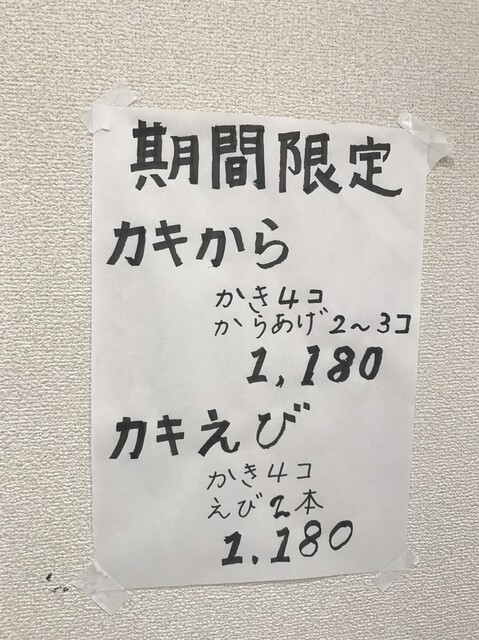 期間限定
カキから
かき4コ
からあげ2～3コ
1,180
カキえび
かき4コ
えび2本
1.180